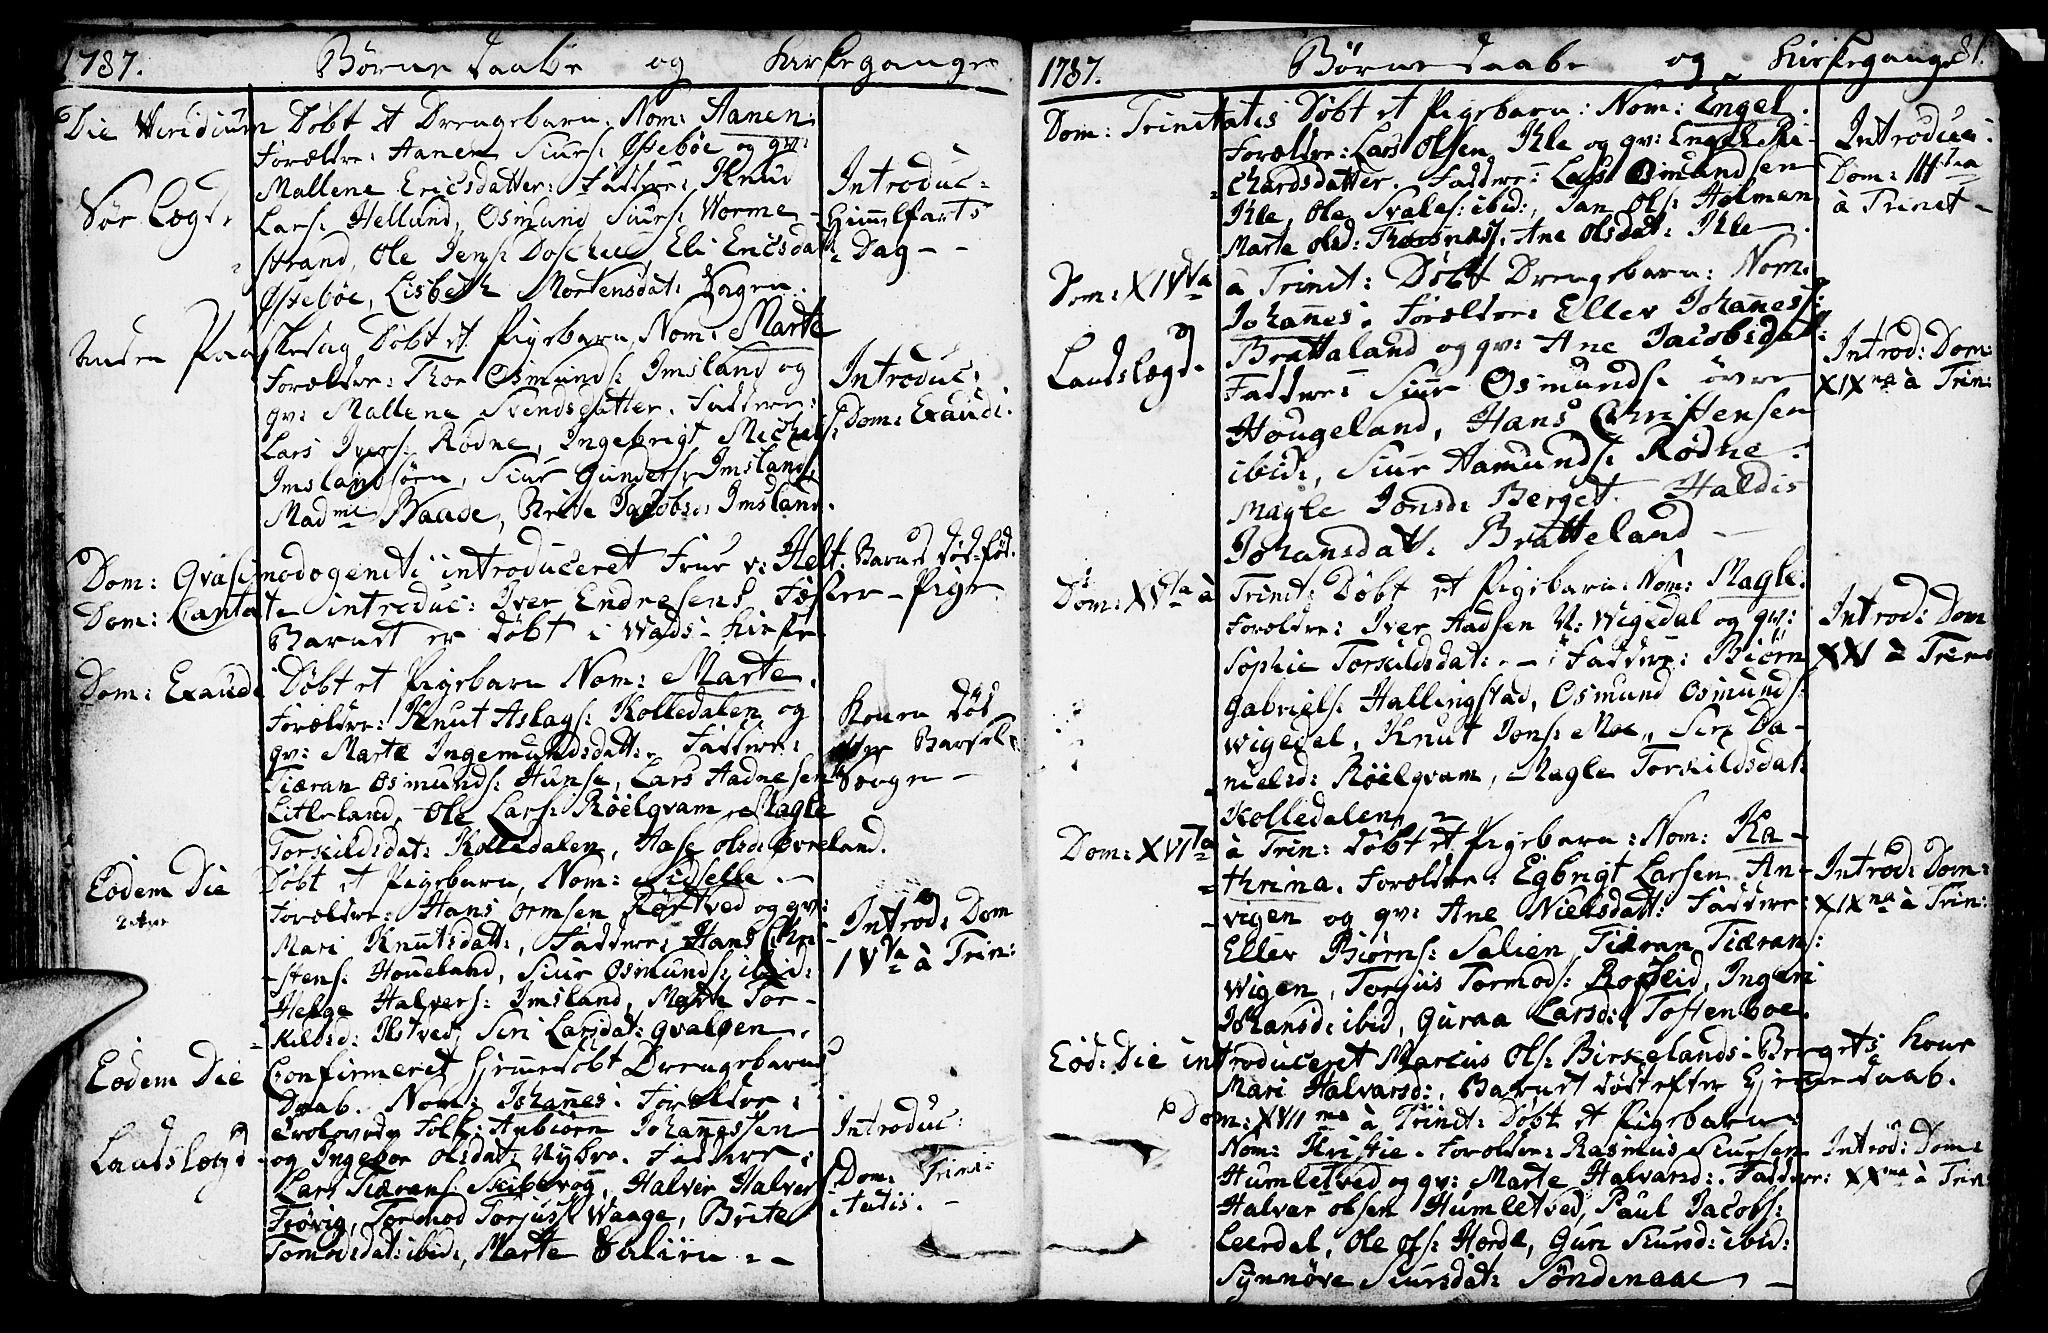 1787. Børne Daabe og Kirkegange
Die Viridium Døbt et Drengebarn. Nom: Aanen.
Forældre: Aanen Siurs: Østebøe og qv:
Mallene Ericsdatter: Faddere: Knud
Sør Lægd. Lars: Hellund, Osmund Siurs: Worme-
strand, Ole Jens: Eli Ericsdatt:
Østebøe, Lisbeth Mortensdat: Vagen.
Introduc:
Himmelfarts
Dag -
Anden Paaskedag Døbt et Pigebarn, Nom: Marte
Forældre: Thor Osmunds: Imsland og
qv: Mallene Svendsdatter. Faddere:
Lars Ivers: Rødne, Ingebrigt Michels:
Imslandsøen, Siur Gunders: Imsland,
Mad.me Waade, Brite Jacobsd: Imsland.
Introduc:
Dom: Exaudi.
Dom: Qvasimodogeniti introduceret Frue v: Helt. Barnet død-fød.
Dom: Cantate introduc: Iver Endresens Pige.
Barnet er døbt i Wads-Kirke
Dom: Exaudi Døbt et Pigebarn Nom: Marte.
Forældre: Knut Aslags: Kolledalen og
qv: Marte Ingemundsdatt: Faddere:
Tiæran Osmunds: Hunse, Lars Aadnesen
Litleland, Ole Lars: Røelqvam, Magle
Torkildsdat: Kolledalen, Aase Olsd: Øvreland.
Konen død
efter Barsel
Eodem Die Døbt et Pigebarn, Nom: Sidselle.
Forældre: Hans Ormsen Røstved og qv:
Mari Knutsdatt:, Faddere: Hans Chri-
-stens: Houeland, Siur Osmunds: ibid:
Helge Halvers: Imsland, Marte Tor-
kildsd: Ilstved, Siri Larsdat: Qvaloen.
Introd: Dom
IVta à Trin:
Eodem Die Confirmeret Hiemmedøbt Drengebarns
Daab. Nom: Johanes: Forældre:
Trolovede Folk: Anbiørn Johanessen
Landslægd og Ingebor Olsdat: Nybro. Faddere:
Lars Tiærans: Skibevog, Halver Halvers:
Frøvig, Tormod Torjuss: Waage, Brite
Tormodsdat: ibid:, Marte Salien
Introduc:
Dom: Trini-
tatis.
1787. Børne Daabe og Kirkegange 81.
Dom: Trinitatis Døbt et Pigebarn: Nom: Engel.
Forældre: Lars Olsen Ilde og qv: Engel Ri-
chardsdatter. Faddere: Lars Osmundsen
Ile, Ole Svales: ibid:, Jan Ols: Holmen
Marte Olsd: Ane Olsdat: Ile
Introduc:
Dom: IIItia
à Trinit -
Dom: XIVta à Trinit: Døbt Drengebarn: Nom.
Johanes: Forældre: Eller Johaness:
Landslægd. Brattaland og qv: Ane Jacobsdat:
Faddere: Siur Osmunds: øvre
Hougeland, Hans Christensen
ibid:, Siur Aamunds: Rødne:
Magle Jonsd: Berget. Haldis
Johansdat. Bratteland
Introd: Dom:
XIXna à Trin:
Dom: XVta à Trinit: Døbt et Pigebarn: Nom: Magle.
Forældre: Iver Aadsen N: Wigedal og qv:
Sophie Torkildsdat: Faddere: Biørn
Gabriels: Hallingstad, Osmund Osmunds:
Wigedel, Knut Jons: Moe, Siri Da-
nielsd: Røelqvam, Magle Torkildsdat:
Kolledalen
Introd: Dom
XX à Trin:
Dom: XVIta à Trin: Døbt et Pigebarn: Nom: Ka-
thrina. Forældre: Egbrigt Larsen An-
vigen og qv: Ane Nielsdatt: Faddere:
Eller Biørns: Salien, Tiæran Tiærans:
Wigen, Torjuis Tormods: Ropeid, Ingeri
Johansd: ibid, Guraa Larsd: Toftenboe.
Introd: Dom:
XIXna à Trin:
Eod: Die introduceret Marcus Ols: Birkelands: Bergets Kone
Mari Halvarsd:, Barnet død efter Hiemmedaab.
Dom: XVIIma à Trinit: Døbt et Pigebarn:
Nom: Kristie. Forældre: Rasmus Siursen
Humletved og qv: Marte Halvarsd: Faddere:
Halvar Olsen Humletved, Paul Jacobs:
Leerdal, Ole Ols: Horda, Guri Siursd: ibid:
Synnøve Siursdat: Søndenaae
Introd: Dom:
XXma à Trin: